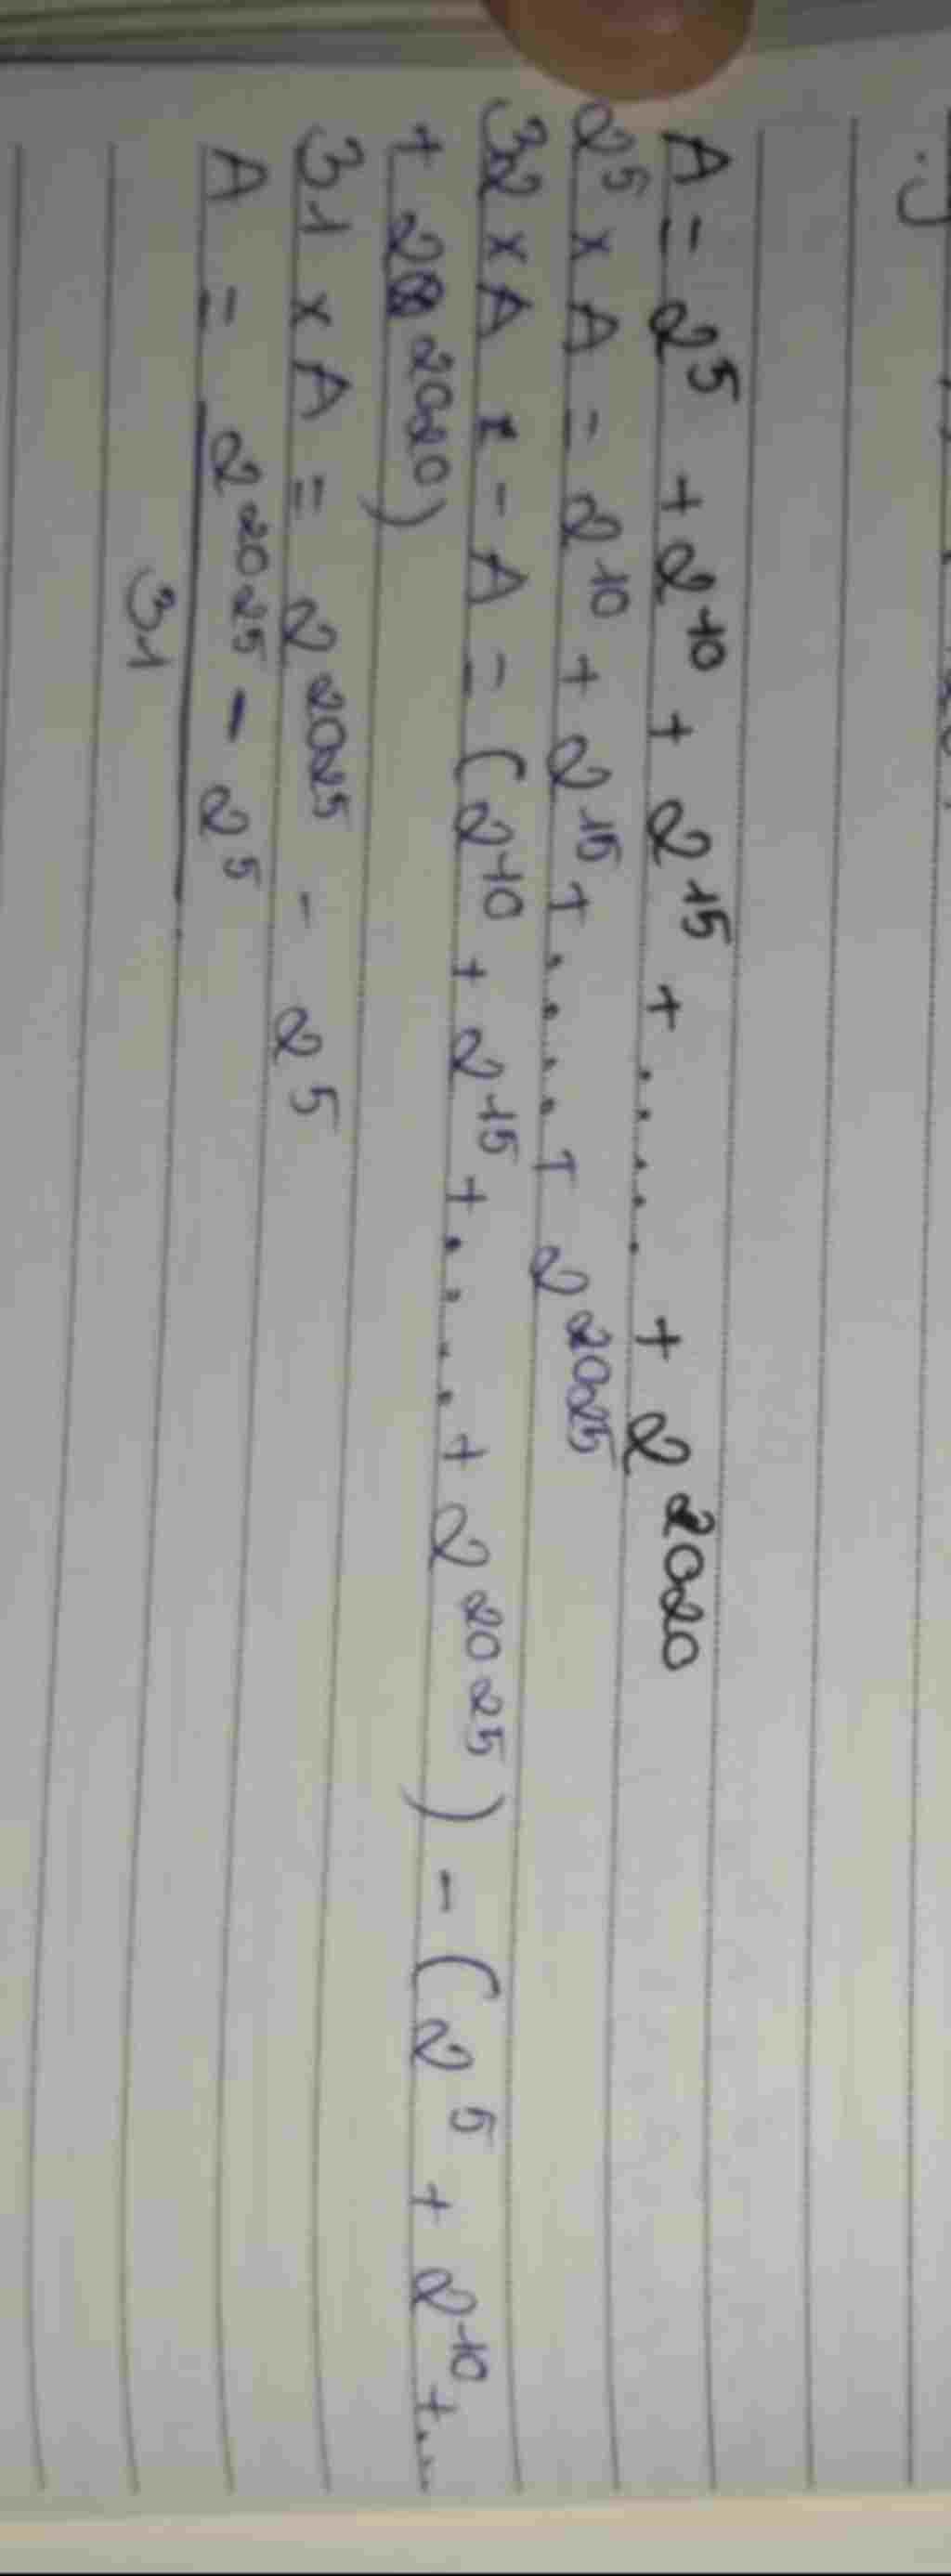 A = 2⁵ + 2¹⁰ + 2¹⁵ + ..... + 2²⁰²⁰
2⁵ x A = 2¹⁰ + 2¹⁵ + .... + 2²⁰²⁵
32 x A - A = (2¹⁰ + 2¹⁵ + .... + 2²⁰²⁵) - (2⁵ + 2¹⁰ + ...
+ 2²⁰²⁰)
31 x A = 2²⁰²⁵ - 2⁵
A = 2²⁰²⁵ - 2⁵
31